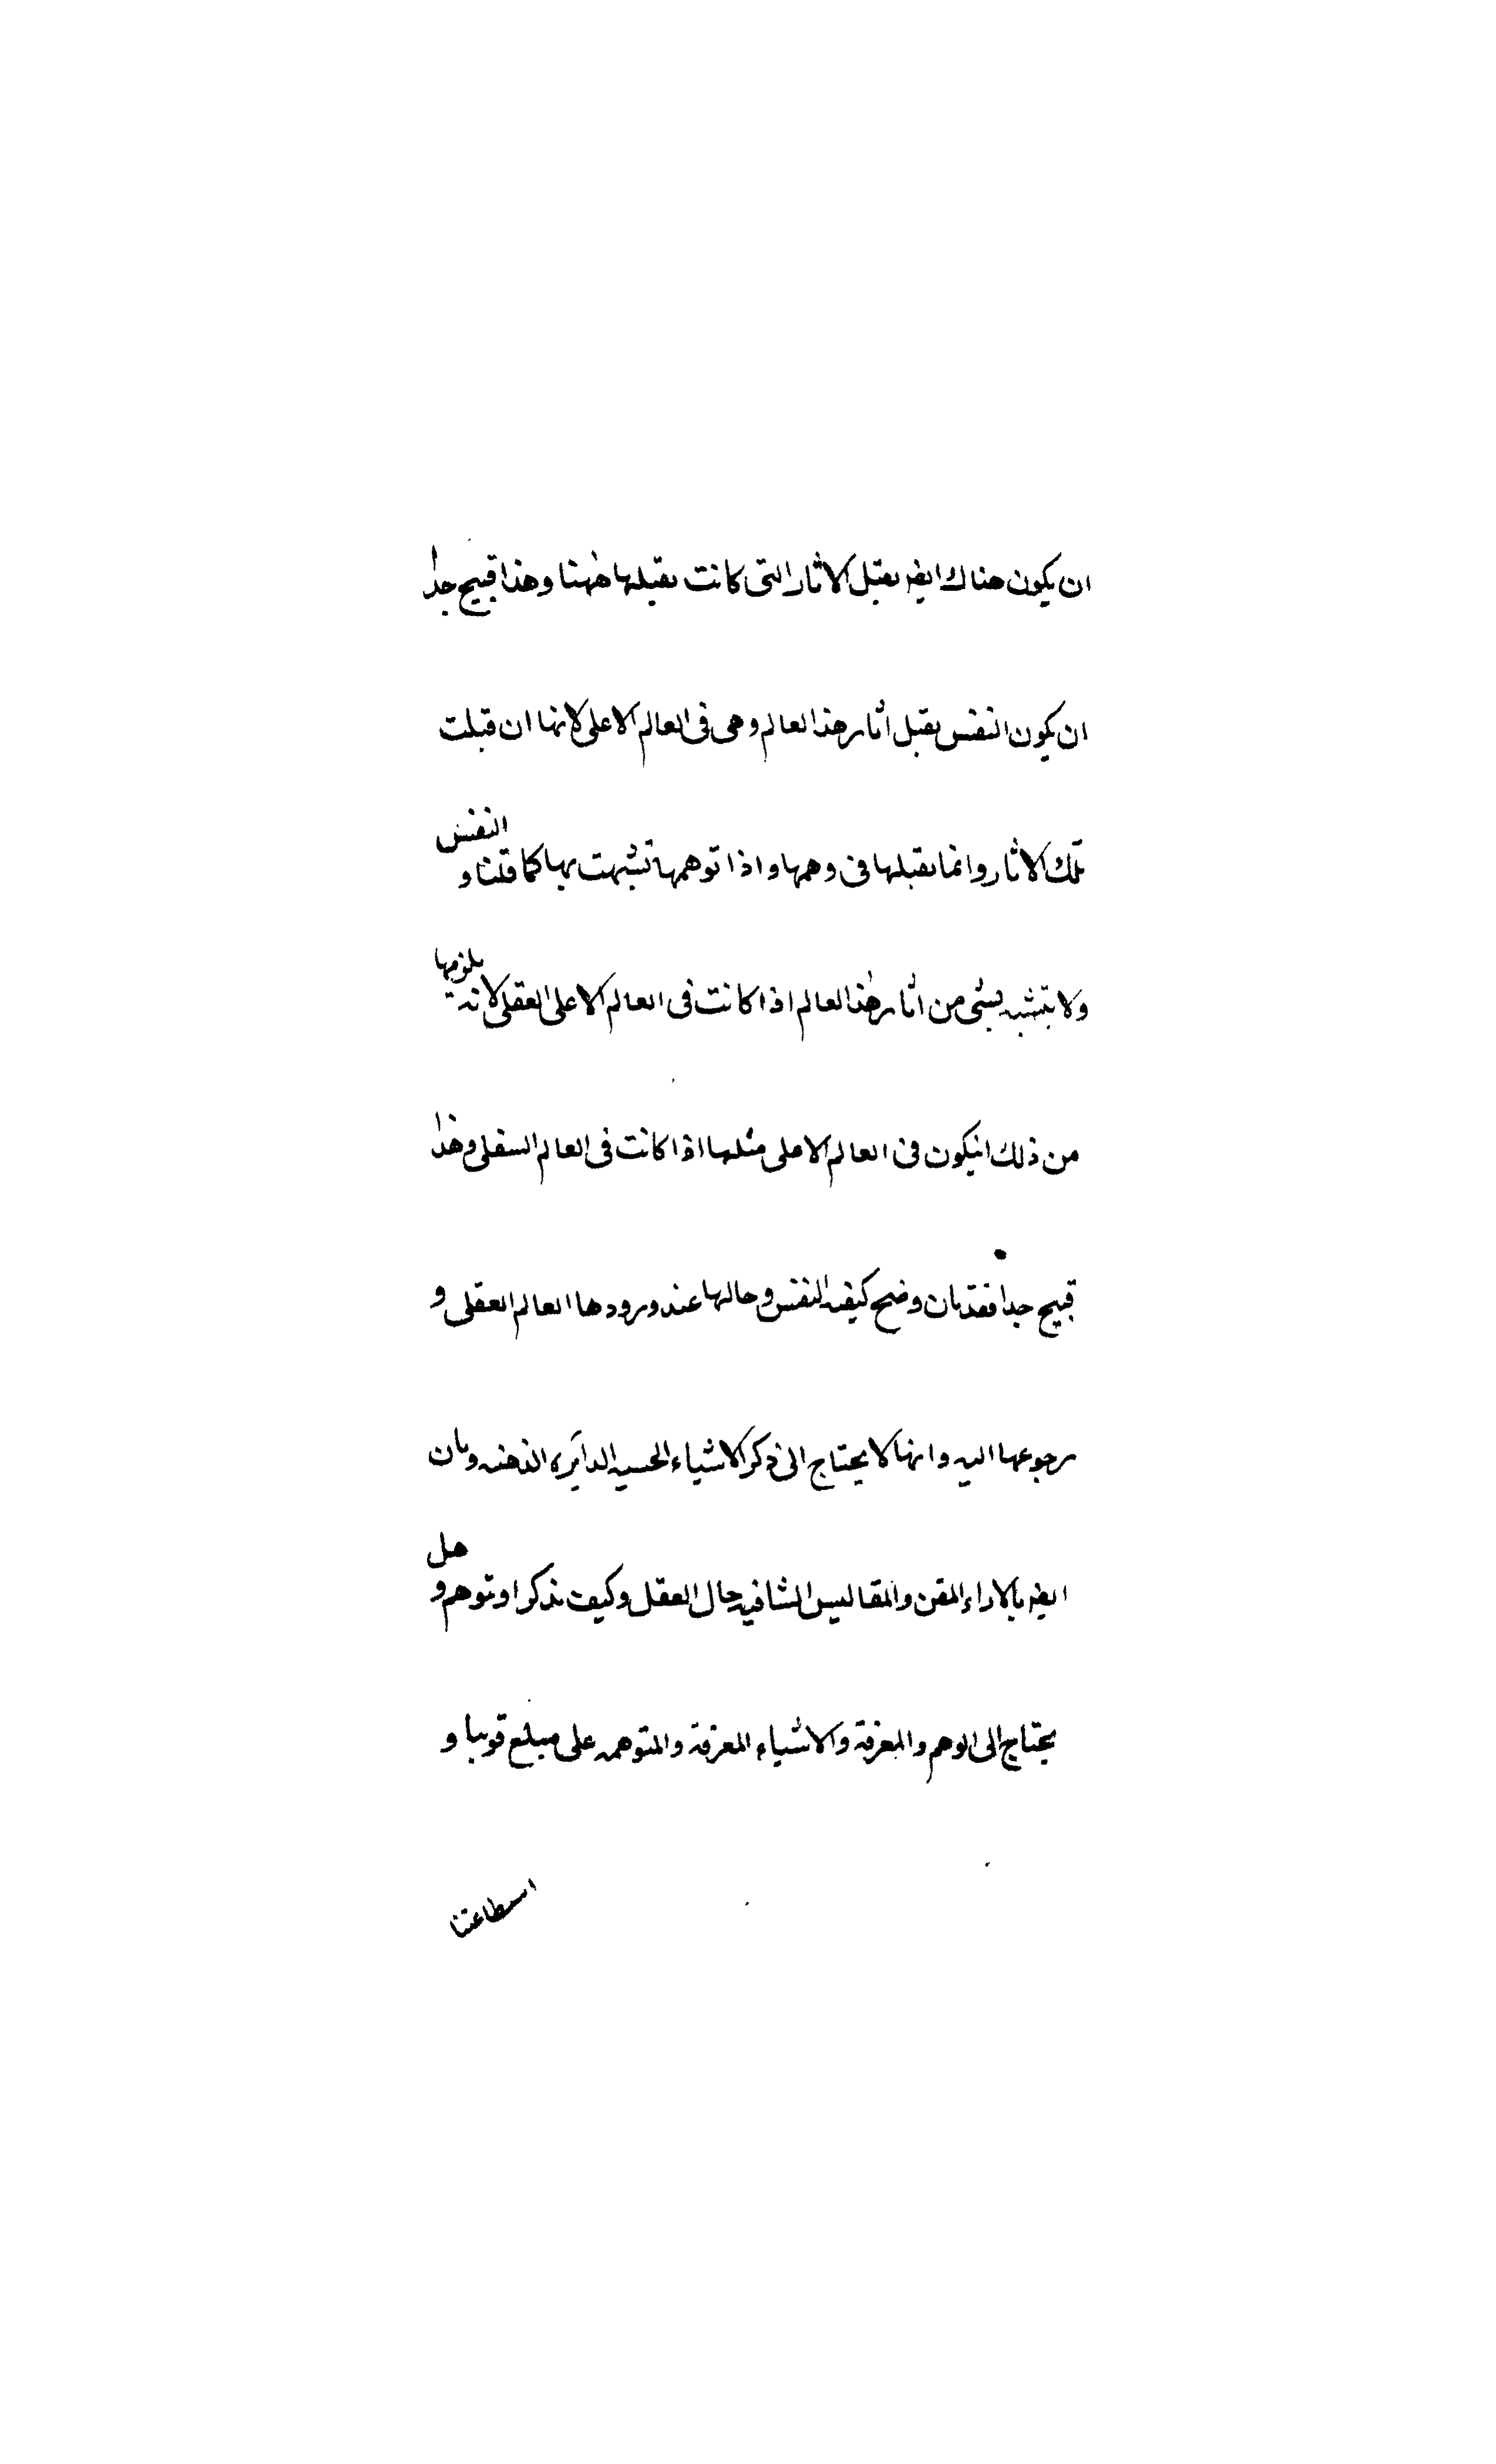 ان يكون هناك ايضه يقبل الاثار التى كانت يقبلها ههنا وهذا قبيح جدا
ان يكون النفس يقبل اثار هذا العالم وهى فى العالم الاعلى لانها ان قبلت
تلك الاثار وانما يقبلها فى وهمها واذا توهمها تشبهت بها كما قلنا و النفس
ولا يتشبه بشئ من اثار هذا العالم اذا كانت فى العالم الاعلى العقلى لانه يلزمها
من ذلك انيكون فى العالم الاعلى مثلها اذا كانت فى العالم السفلى وهذا
قبيح جدا فقد بان وضح كيفيه النفس وحالها عند ورودها العالم العقلى و
رجوعها اليه وانها لا يحتاج الى ذكر الاشياء الحسيه الدايره الدنيه وبان
ايضه بالاراء المقن والمقاليس الشافيه حال العقل وكيف يذكر او يتوهم و هل
يحتاج الى الوهم والمعرفة والاشياء المعرفة والمتوهمه على مبلغ قوتنا و
استطاعتنا